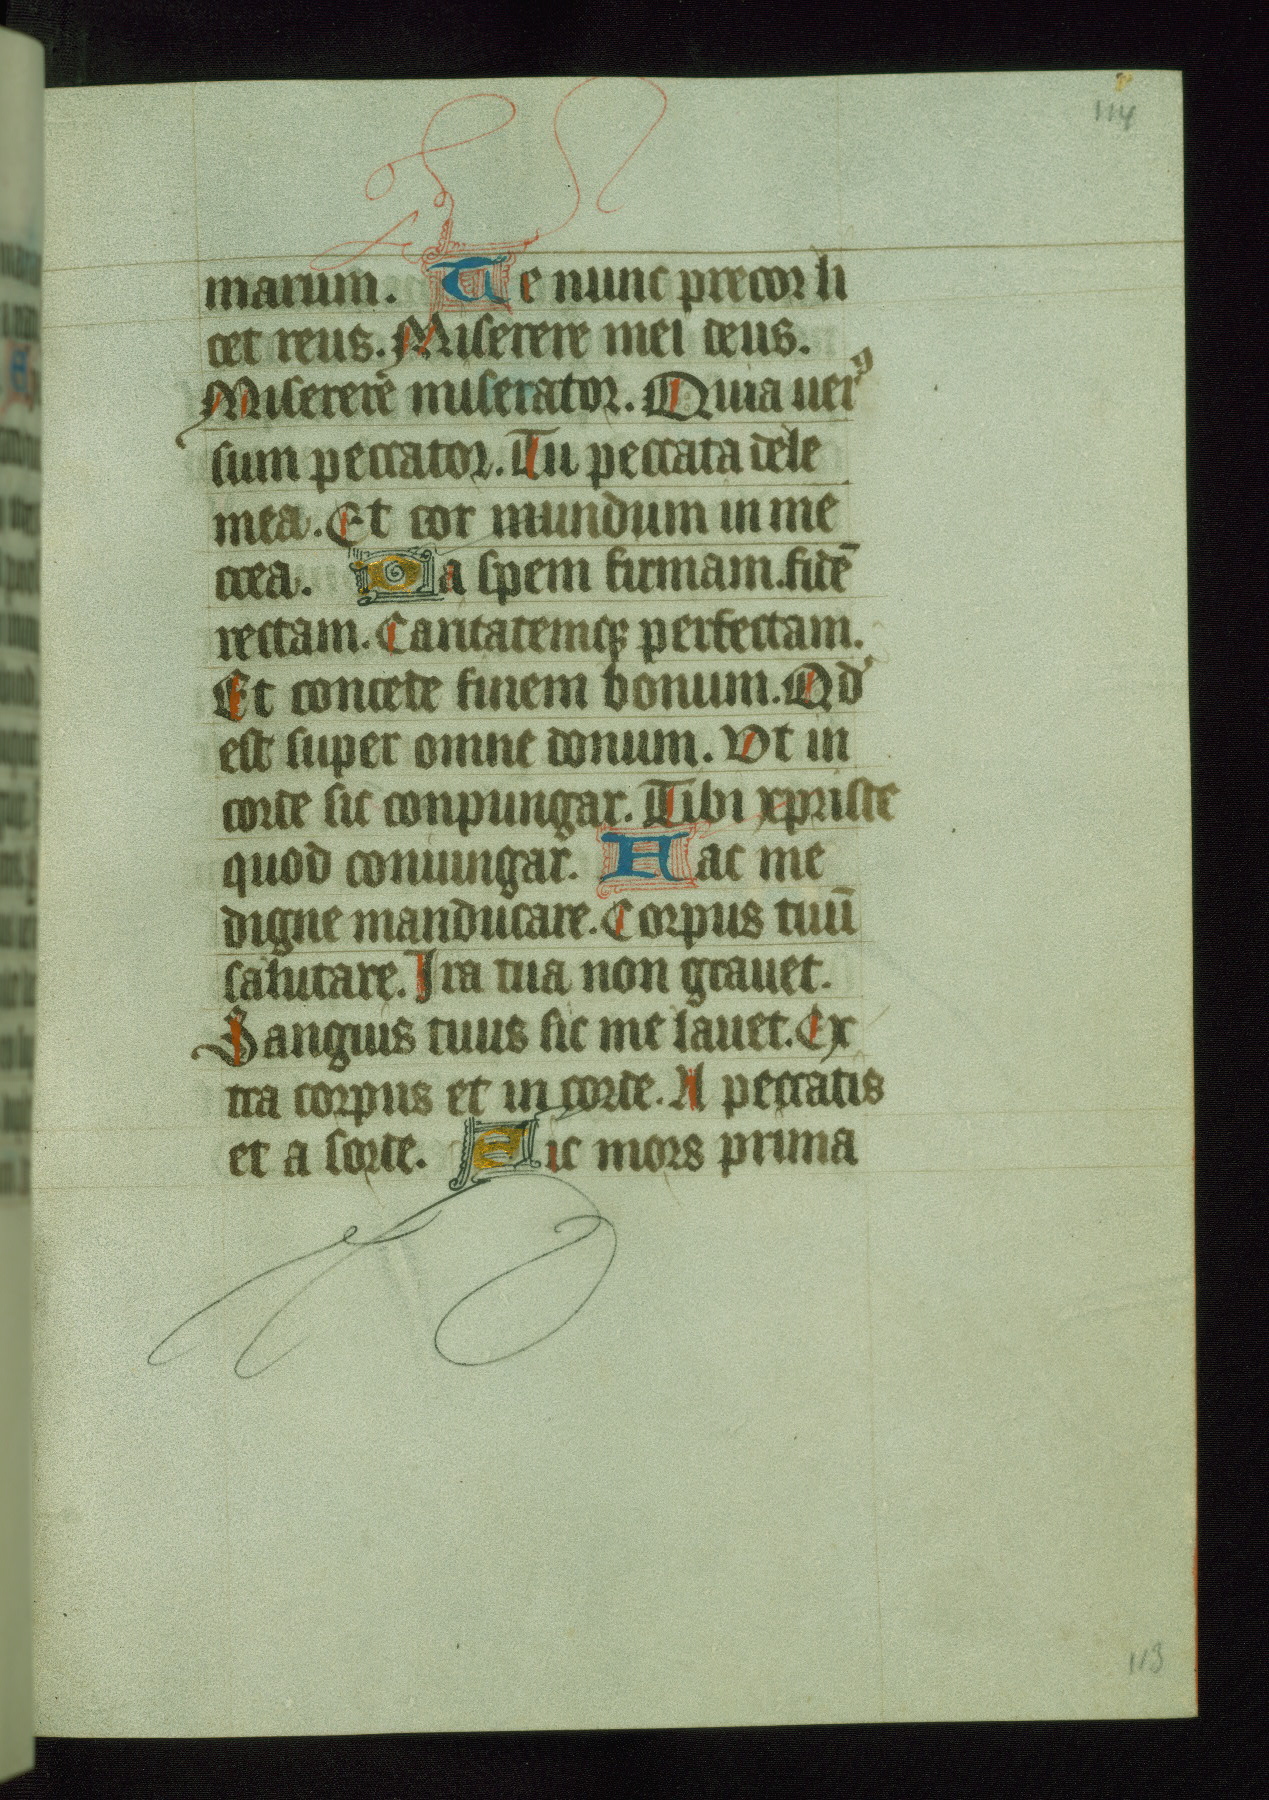 114
marum. Te nunc precor li
cet reus. Miserere mei deus.
Miserere miserator. Quia uer⁹
sum peccator. Tu peccata dele
mea. Et cor mundum in me
crea. Da spem firmam. fidē
rectam. Caritatemqꝫ perfectam.
Et concede finem bonum. Qd'
est super omne donum. Vt in
corde sic conpungar. Tibi xpriste
quod coniungar. Hac me
digne manducare. Corpus tuū
salutare. Ira tua non grauet.
Sanguis tuus sic me lauet. Ex
tra corpus et in corde. A peccatis
et a sorde. Sic mors prima
113